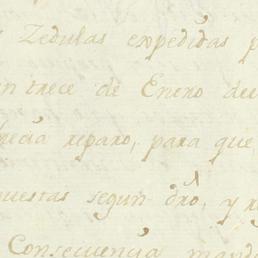 Zedulas expedidas p
en trece de Enero de
hecia reparo, para que
puestas segun dro, y
Consecuencia mand